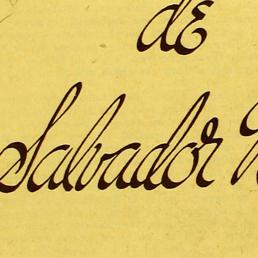 de
Salvador